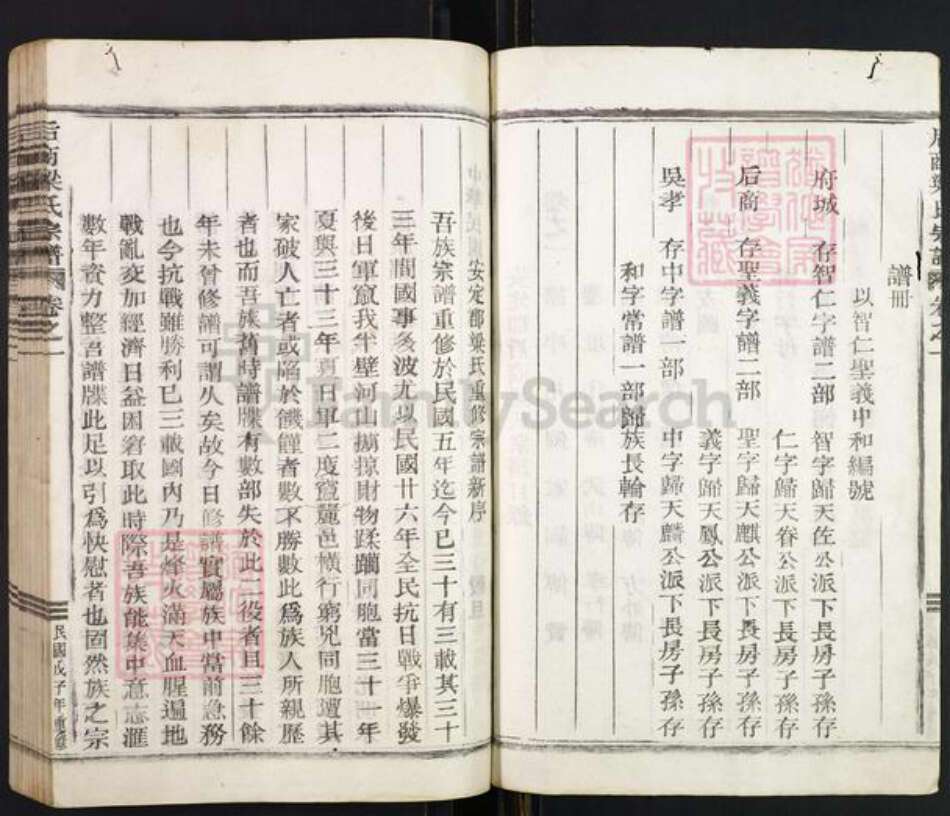 譜冊
以智仁聖義中和編號
府城 存智仁字譜二部 智字歸天佐公派下長房子孫存
仁字歸天眷公派下長房子孫存
后商 存聖義字譜二部 聖字歸天麒公派下長房子孫存
義字歸天鳳公派下長房子孫存
吳孝 存中字譜一部 中字歸天麟公派下長房子孫存
和字常譜一部歸族長輪存
安定郡梁氏重修宗譜新序
吾族宗譜重修於民國五年迄今已三十有三載其三十
三年間國事多後波尤以民國廿六年全民抗日戰爭爆發
後日軍竄我半壁河山擄掠財物蹂躪同胞當三十一年
夏與三十三年夏日軍二度竄麗邑橫行窮兇同胞遭其
家破人亡者或餡於饑饉者數不勝數此為族人所親歷
者也而吾族舊時譜牒有數部失於此二役者且三十餘
年未曾修譜可謂久矣故今日修譜實屬族中當前急務
也今抗戰雖勝利已三載國內乃是烽火滿天血腥遍地
戰亂交加經濟日益困窘取此時際吾族能集中意志滙
數年資力整吾譜牒此足以引為快慰者也固然族之宗
后商梁氏宗譜 卷之一
民國戊子年重修
FamilySearch